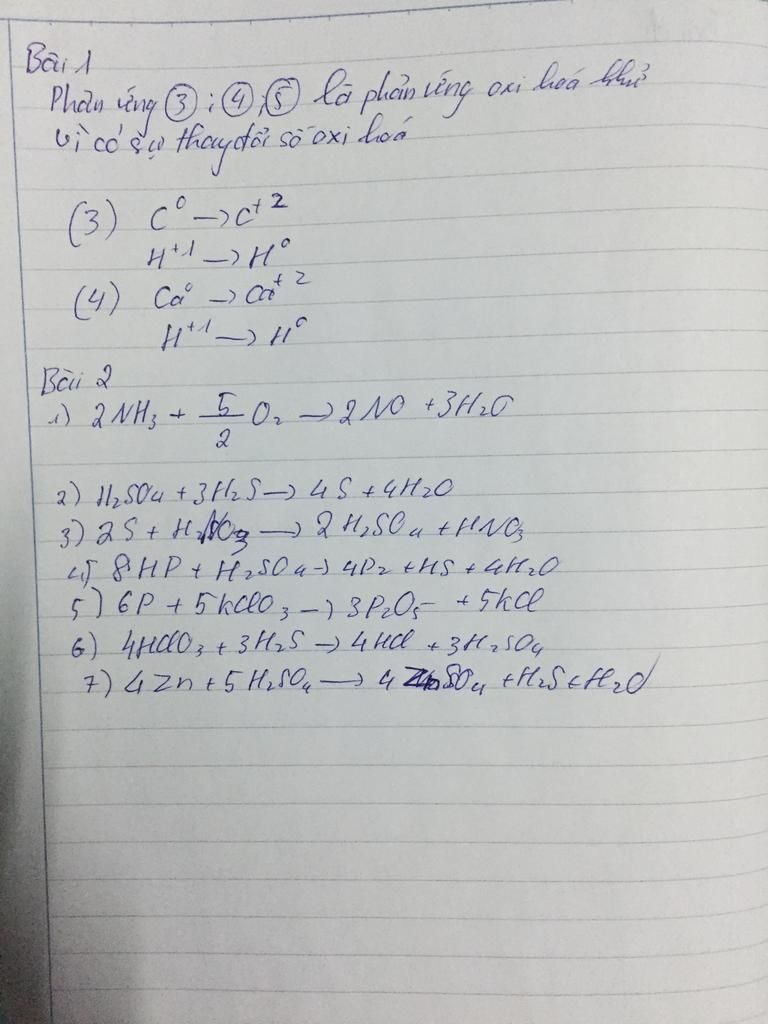 Bài 1
Phản ứng ③ ; ④ ; ⑤ là phản ứng oxi hoá khử
vì có sự thay đổi số oxi hoá
(3) C⁰ → C⁺²
H⁺¹ → H⁰
(4) Ca⁰ → Ca⁺²
H⁺¹ → H⁰
Bài 2
1) 2NH₃ + 5/2 O₂ → 2NO + 3H₂O
2) H₂SO₄ + 3H₂S → 4S + 4H₂O
3) 2S + H₂NO₃ → 2H₂SO₄ + HNO₃
4) 8HP + H₂SO₄ → 4P₂ + HS + 4H₂O
5) 6P + 5KClO₃ → 3P₂O₅ + 5KCl
6) 4HClO₃ + 3H₂S → 4HCl + 3H₂SO₄
7) 4Zn + 5H₂SO₄ → 4ZnSO₄ + H₂S + H₂O